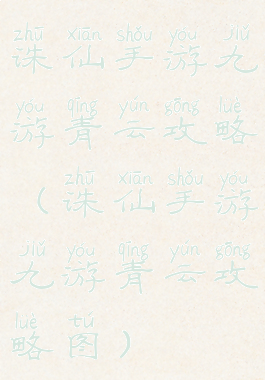 zhū xiān shǒu yóu jiǔ
诛仙手游九
yóu qīng yún gōng lüè
游青云攻略
zhū xiān shǒu yóu
（诛仙手游
jiǔ yóu qīng yún gōng
九游青云攻
lüè tú
略图）